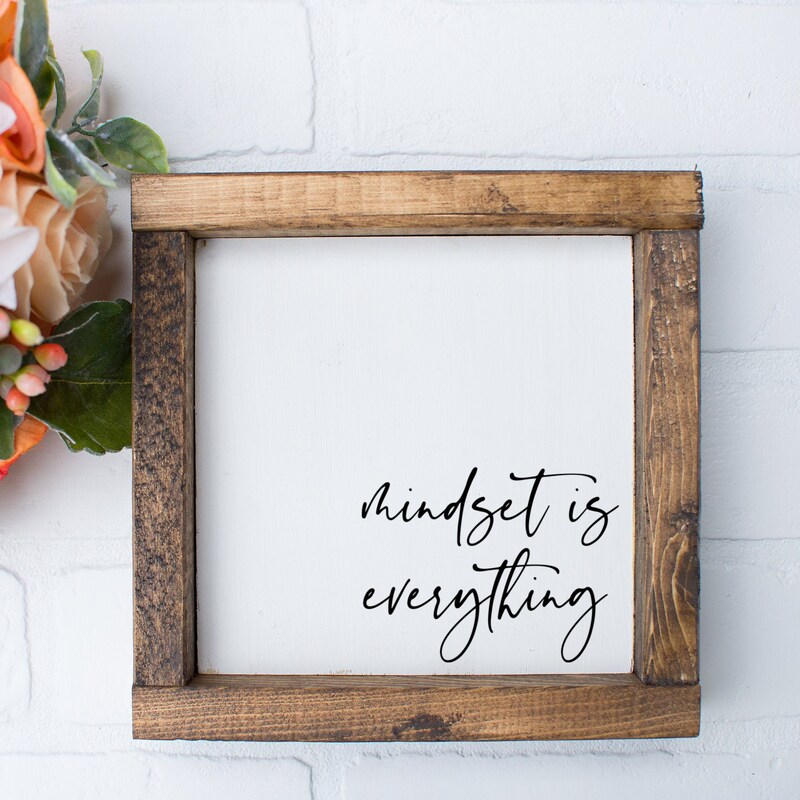 mindset is
everything